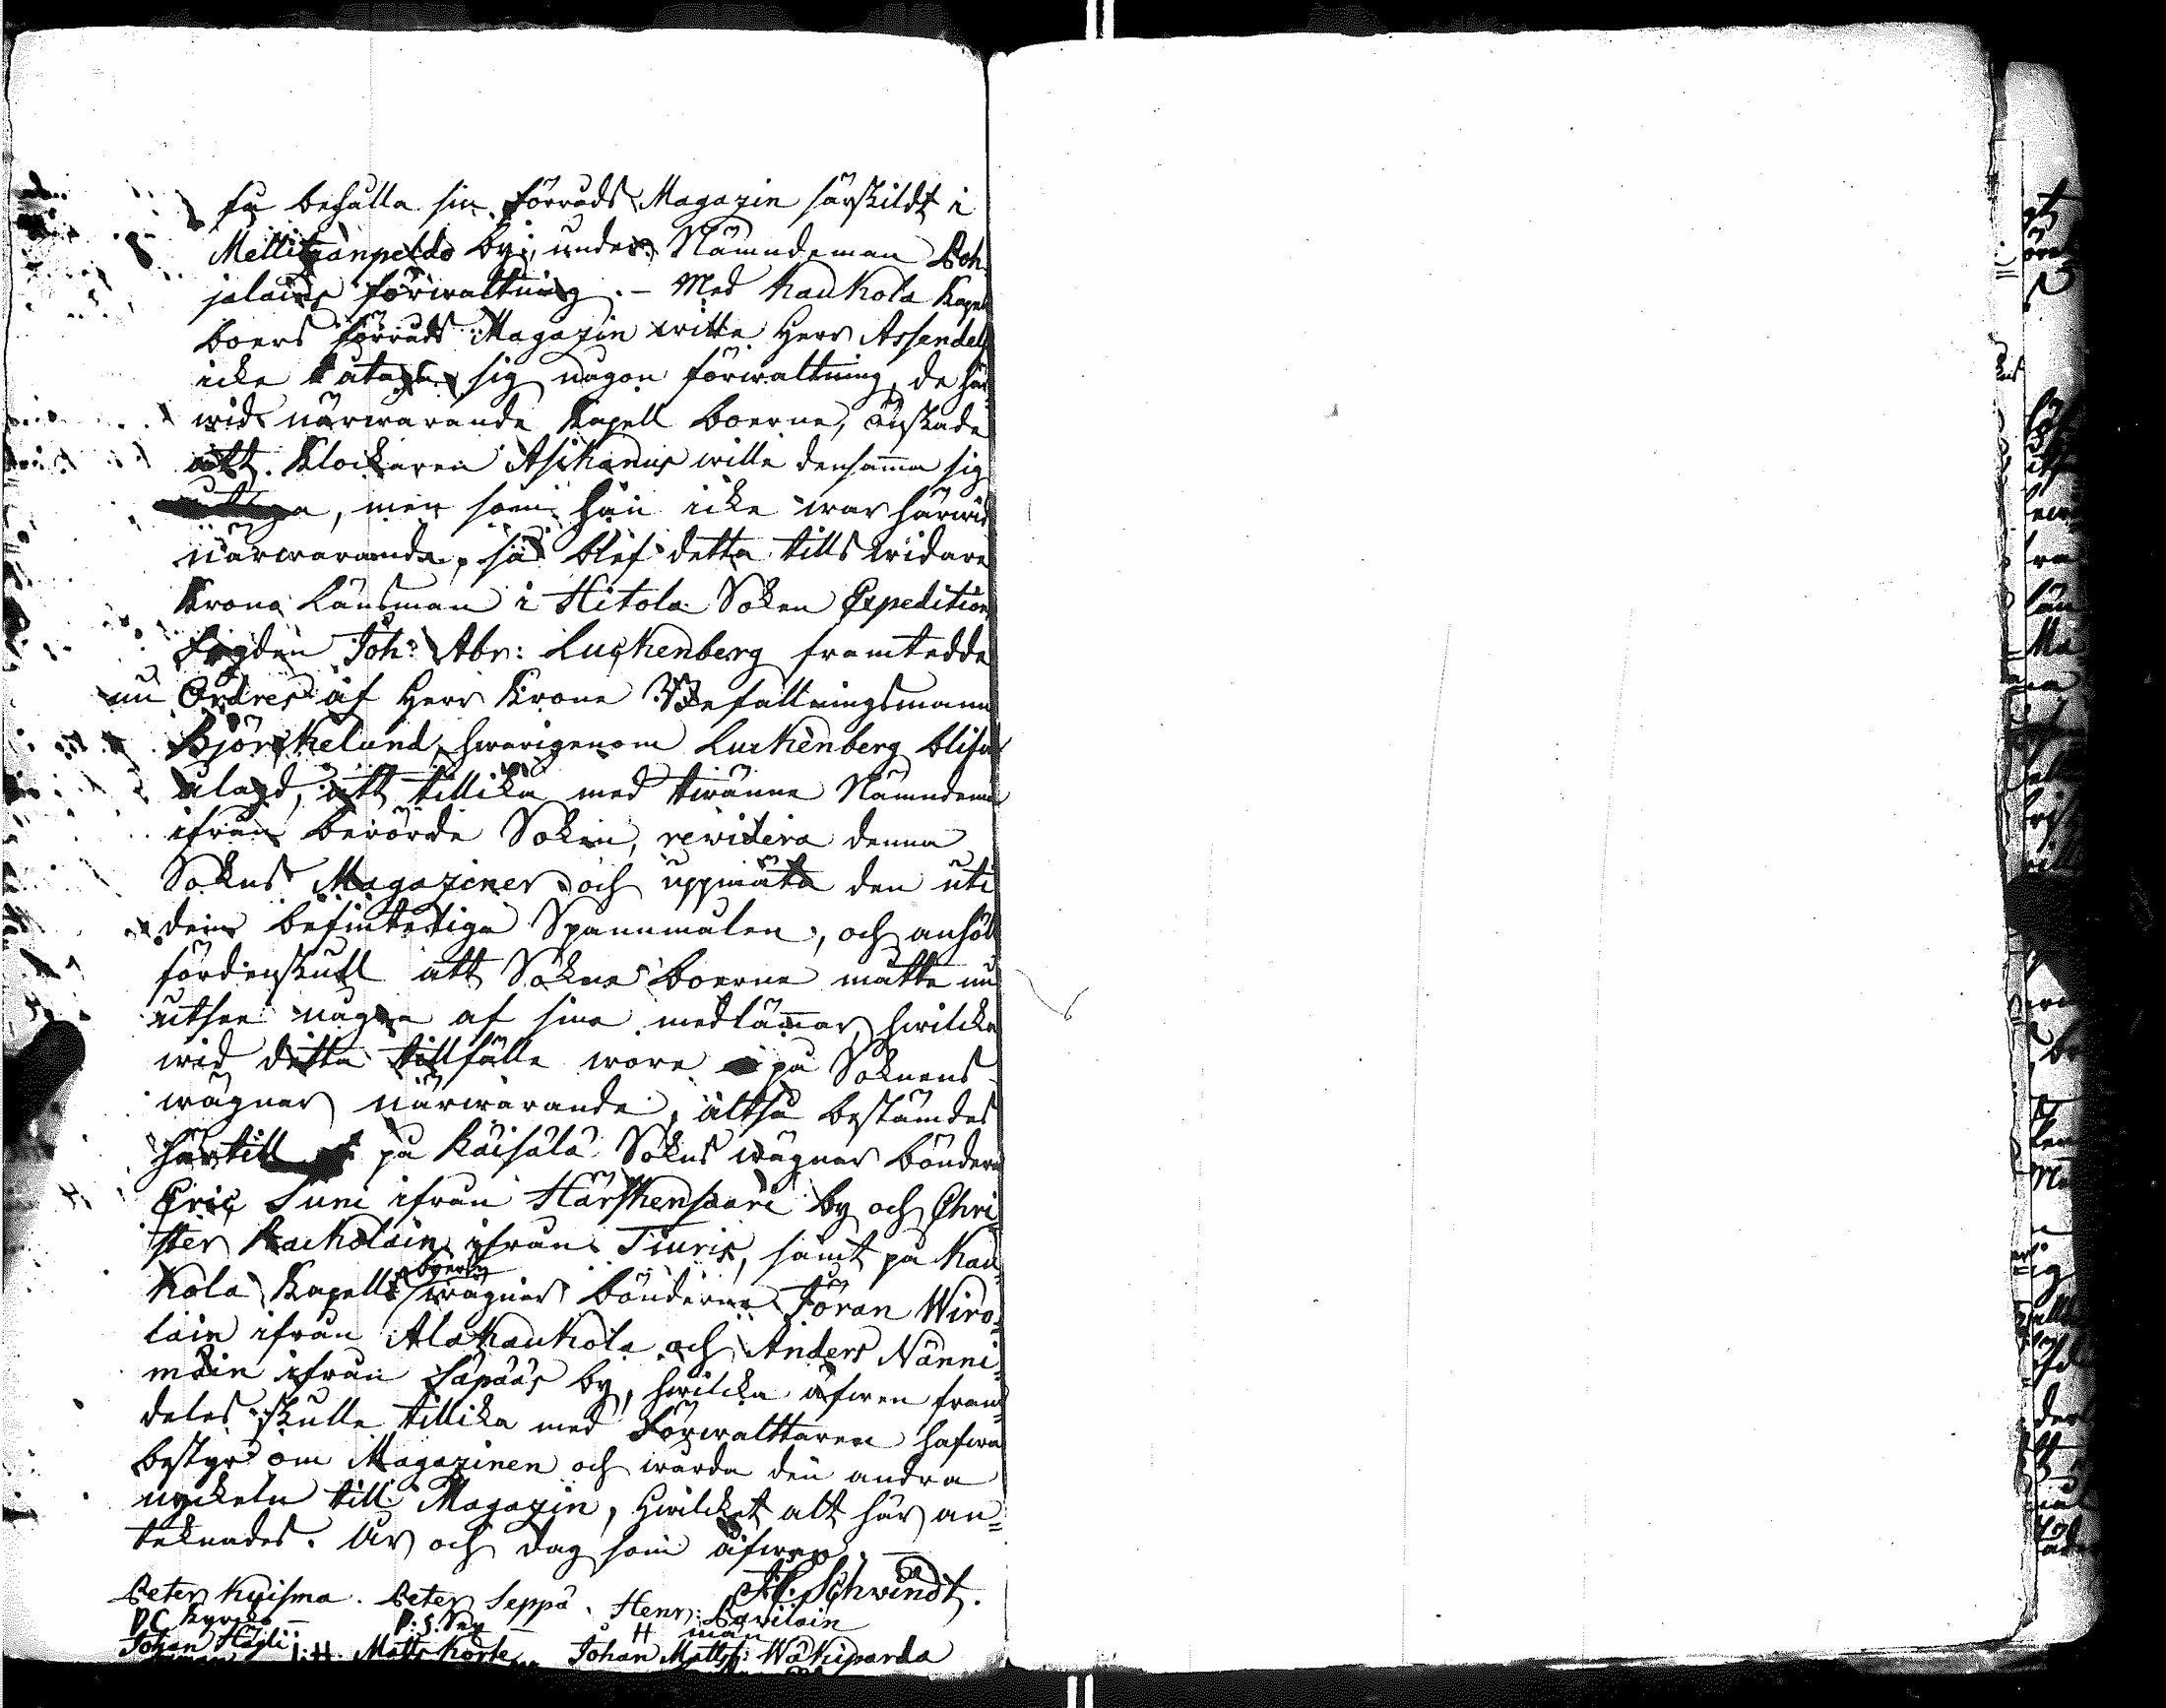 få behålla sin Förråds Magazin särskildt i
Mellitzänpeldo by, under Nämndeman Poh-
jalains förwaltning. – Med Kaukola Kapell
boers Förråds Magazin wille Herr Assendelft
icke åtaga sig någon förwaltning, de här-
wid närwarande Kapell boerne, önskade
att Klockaren Asikanus wille densamma sig
åttaga, men som han icke war härwid
närwarande, så blef detta tills widare
Krono Länsman i Hitola Soken Expeditions
Fogden Joh: Abr: Luckenberg framtedde
nu Ordres af Herr Krono Befallningsmann
Björckelund, hwarigenom Luckenberg blifwit
ålagd, att tillika med twänne Nämndemän
ifrån berörde Soken, revidera denna
Sokns Magaziner och uppmäta den uti
dem befinteliga Spannmålen, och anhölt
fördenskull att Sokne boerne måtte nu
utsee några af sina medlämmar, hwilcka
wid detta tillfälle wore på Soknens
wägnar närwarande, altså bestämdes
härtill på Räisälä Sokns wägnar bönderne
Eric Suni ifrån Härskensaari by och Chri-
ster Kackolain ifrån Tiuris, samt på Kau-
kola Kapells boers wägnar bönderne Jöran Wiro-
lain ifrån Alakaukola och Anders Nänni-
mäin ifrån Läpääs by, hwilcka äfwen fram-
deles skulle tillika med Förwalttaren hafwa
bestyr om Magazinen och wårda den andra
nyckeln till Magazin, hwilcket alt här an-
teknades. År och dag som äfwan. –
Schwindt.
Peter Kyisma. Peter Seppä. Henr: Pawilain
Johan Hägli Matts Korte Johan Mattss: Wäkiparda